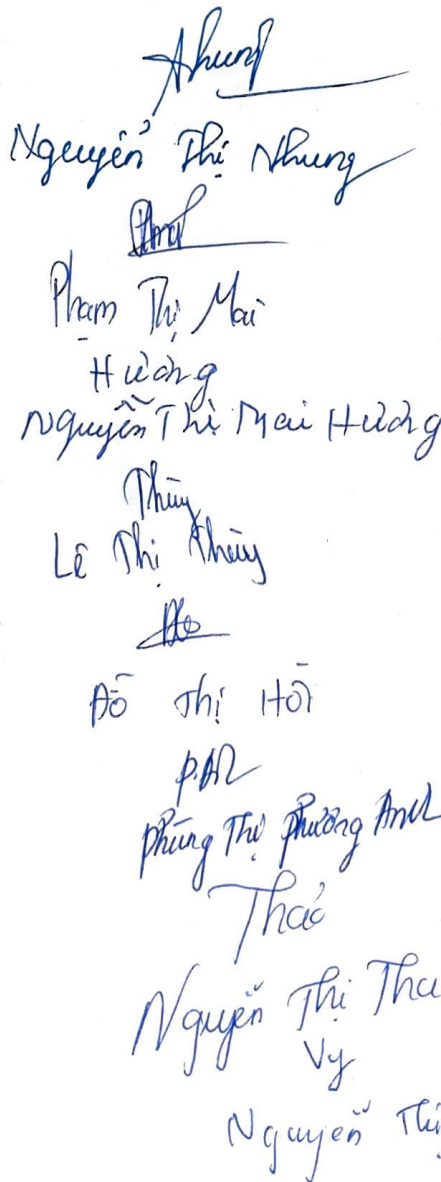 Nhung
Nguyễn Thị Nhung
Phạm Thị Mai
Hương
Nguyễn Thị Mai Hương
Thùy
Lê Thị Thùy
Đỗ Thị Hời
P.An
Phùng Thị Phương Anh
Thảo
Nguyễn Thị Thả
Vy
Nguyễn Thị